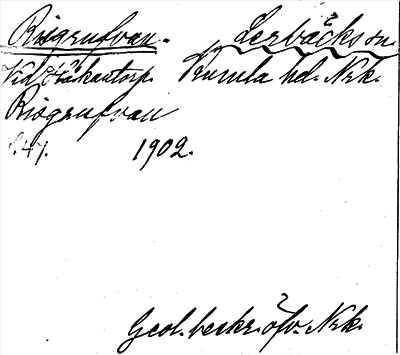 Risgrufvan. Lerbäcks sn.
Vid Håkantorp. Kumla hd. Nrk.
Risgrufvan
s.47. 1902.
Geol. beskr. öfv. Nrk.